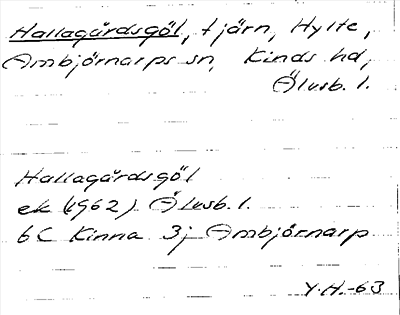 Hallagårdsgöl, tjärn, Hylte,
Ambjörnarps sn, Kinds hd,
Älvsb. l.
Hallagårdsgöl
ek (1962) Älvsb. l.
6C Kinna 3j Ambjörnarp
Y.H.-63